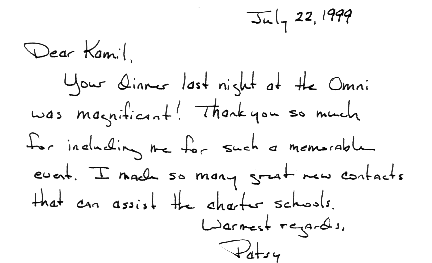 July 22, 1999
Dear Kamil,
Your dinner last night at the Omni
was magnificent! Thank you so much
for including me for such a memorable
event. I made so many great new contacts
that can assist the charter schools.
Warmest regards,
Patsy